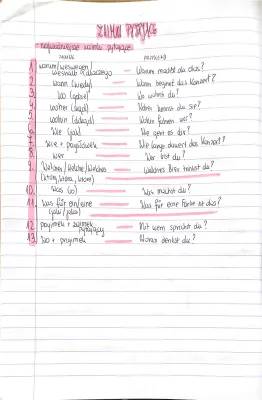 ZAIMKI PYTAJĄCE
najważniejsze zaimki pytające
zaimek przykład
1. warum/weswegen
weshalb dlaczego Warum machst du das?
2. wann (kiedy) Wann beginnt das Konzert?
3. wo (gdzie) Wo wohnst du?
4. woher (skąd) Woher kennst du sie?
5. wohin (dokąd) Wohin fahren wir?
6. Wie (jak) Wie geht es dir?
7. wie + przymiotnik Wie lange dauert das Konzert?
8. wer Wer bist du?
9. Welcher/Welche/Welches
(który, która, które) Welches Bier trinkst du?
10. Was (co) Was machst du?
11. Was für ein/eine
(jaki/jaka) Was für eine Farbe ist das?
12. przyimek + zaimek
pytający Mit wem sprichst du?
13. Wo + przyimek Woran denkst du?